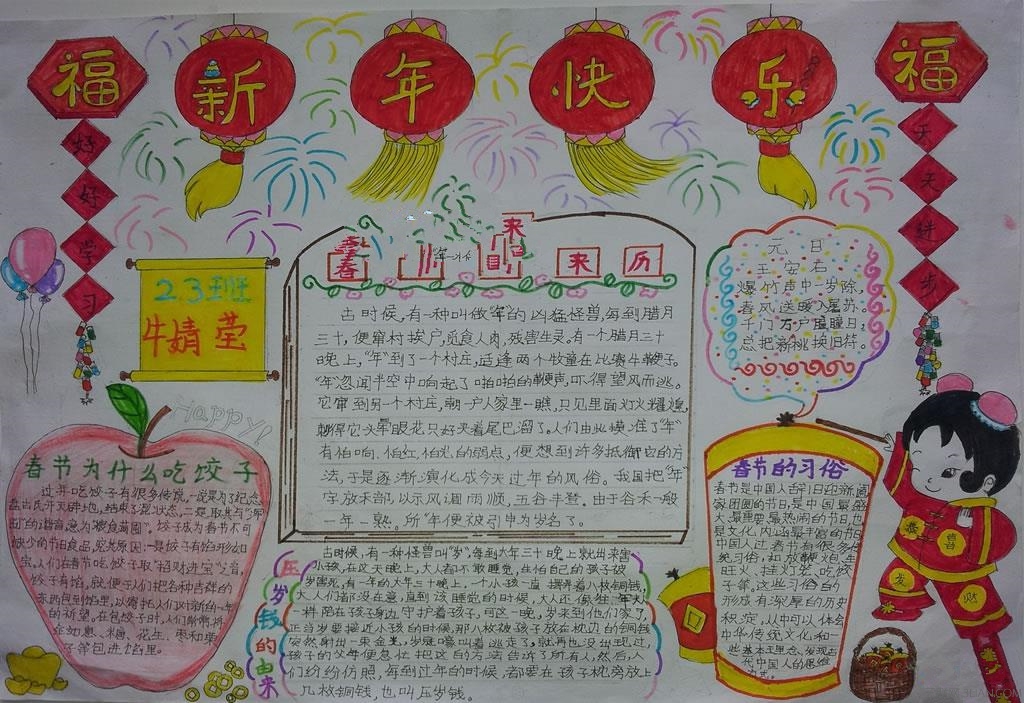 福
新年快乐
福
好好学习
天天进步
2.3班
牛婧莹
Happy!
春节 来历
古时候,有一种叫做"年"的凶猛怪兽,每到腊月
三十,便窜村挨户,觅食人肉,残害生灵。有一个腊月三十
晚上,"年"到了一个村庄,适逢两个牧童在比赛牛鞭子。
"年"忽闻半空中响起了啪啪的鞭声,吓得望风而逃。
它窜到另一个村庄,朝一户人家里一瞧,只见里面灯火辉煌,
刺得它头晕眼花只好夹着尾巴溜了。人们由此摸准了"年"
有怕响、怕红、怕光的弱点,便想到许多抵御它的方
法,于是逐渐演化成今天过年的风俗。我国把"年"
字放禾部,以示风调雨顺,五谷丰登。由于谷禾一般
一年一熟。所"年"便被引申为岁名了。
元日
王安石
爆竹声中一岁除,
春风送暖入屠苏。
千门万户曈曈日,
总把新桃换旧符。
春节为什么吃饺子
过年吃饺子有很多传说,一说是为了纪念
盘古氏开天辟地,结束了混状态,二是取其与"浑
囤"的谐音,意为"粮食满囤"。饺子成为春节不可
缺少的节日食品,究其原因:一是饺子有馅形如元
宝,人们在春节吃饺子取"招财进宝"之音,
饺子有馅,就便于人们把各种吉祥的
东西包到馅里,以寄托人们对新的一年
的祈望。在包饺子时,人们
金如意、糖、花生、枣和栗
子等包进馅里。
压岁钱的由来
古时候,有一种怪兽叫"岁",每到大年三十晚上就出来害
小孩,在这天晚上,大人都不敢睡觉,在怕自己的孩子被
岁害死,有一年的大年三十晚上,一个小孩一直摆弄着八枚铜钱,
大人们都没在意,直到该睡觉的时候,大人还像往年
一样陪在孩子身边守护着孩子,可这一晚,岁来到他们家了,
正当岁要接近小孩的时候,那八枚被孩子放在枕边的铜钱
突然射出一束金光,岁
孩子的父母便急忙把这的方法告诉了所有人,然后人
们纷纷仿照,每到过年的时候,都要在孩子枕旁放上
几枚铜钱,也叫压岁钱。
春节的习俗
春节是中国人
家团圆的节日,是中国最盛
大、最重要、最热闹的节日,也
是文化内涵最丰富的节日
中国人过春节有很多传
统习俗,如放鞭炮、走亲
旺火、挂灯笼、吃饺
子等。这些习俗的
形成有深厚的历史
积淀,从中可以体会
中华传统文化和一
些基本理念,发现古
代中国人的思维
恭
喜
发
财